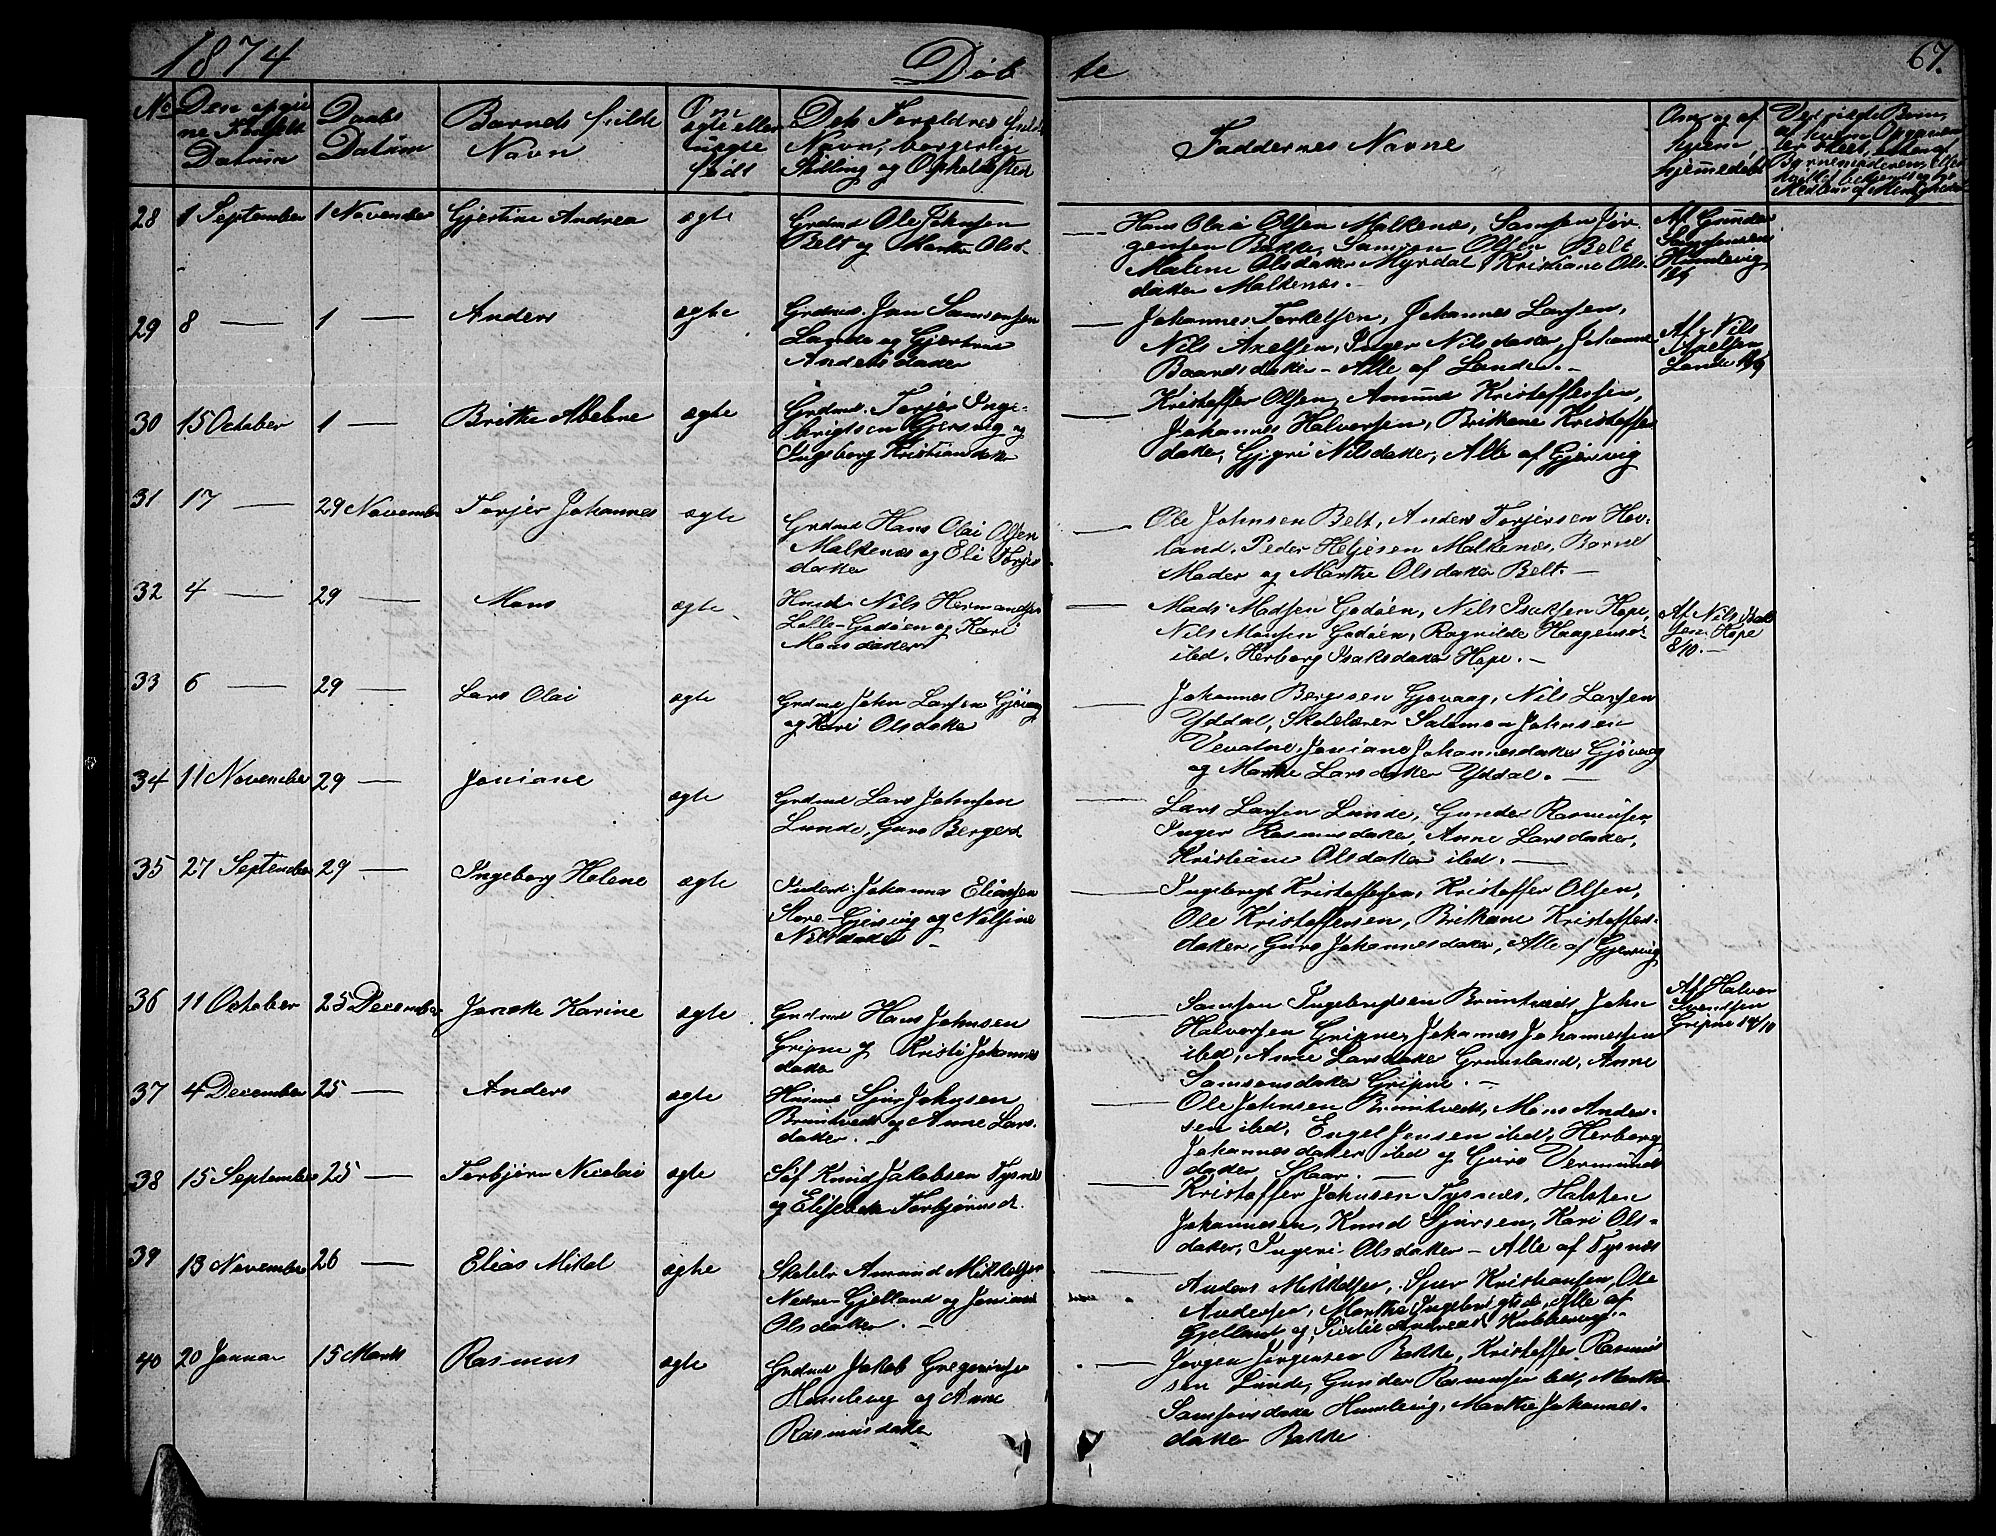 1874 Døbte 67.
No
Den opgivne Fødsels Datum
Daabs Datum
Barnets fulde Navn
Om ægte eller uægte født
Dets Forældres fulde Navn, borgerlige Stilling og Opholdssted
Faddernes Navne
Om og af hvem hjemmedøbt
28 1 September 1 November Gjertine Andrea ægte
Grdmd Ole Johnsen
Belt og Marthe Olsd.
Hans Olai Olsen Malkenæs, Samsen Jør-
gensen Bakke, Samson Olsen Belt
Malene Olsdatter Myrdal, Kristiane Ols-
datter Malkenæs.
Af Gunder
Samsensen
Humlevig
29 8 — 1 — Anders ægte
Grdmd. Jan Samsonsen
Lande og Gjertine
Andersdatter
Johannes Torkelsen, Johannes Larsen,
Nils Axelsen, Inger Nilsdatter, Johanne
Baardsdatter – Alle af Lande.
Af Nils
Axelsen
Lande
30 15 October 1 — Brithe Abeline ægte
Grdmd. Torjer Inge-
brigtsen Gjersvig og
Ingeborg Kristiansdatter
Kristoffer Olsen, Amund Kristoffersen,
Johannes Halvorsen, Brithane Kristoffers
datter, Gjøri Nilsdatter, Alle af Gjersvig
31 17 — 29 November Torjer Johannes ægte
Grdmd Hans Olai Olsen
Malkenæs og Eli Torjers
datter
Ole Johnsen Belt, Anders Torjersen Hov-
land, Peder Heljesen Malkenæs, Barnets
Moder og Marthe Olsdatter Belt.
32 4 — 29 — Mons ægte
Husmd. Nils Hermandsen
Lille-Godøen og Kari
Monsdatter
Mads Madsen Godøen, Nils Isaksen Hope,
Nils Monsen Godøen, Ragnilde Haagensd.
ibid. Herborg Isaksdatter Hope.
Af Nils Isak
sen Hope
8/10.
33 6 — 29 — Lars Olai ægte
Grdmd John Larsen Gjøvaag
og Kari Olsdatter
Johannes Bergesen Gjøvaag, Nils Larsen
Yddal, Skolelærer Salomon Johnsen
Vevatne, Joniane Johannesdatter Gjøvaag
og Marthe Larsdatter Yddal.
34 11 November 29 — Joniane ægte
Grdmd Lars Johnsen
Lunde, Guro Bergesd.
Lars Larsen Lunde, Gunder Rasmusen,
Inger Rasmusdatter, Anne Larsdatter,
Kristiane Olsdatter ibid.
35 27 September 29 — Ingeborg Helene ægte
Inderst. Johannes Eliassen
Store-Gjersvig og Nilsine
Nilsdatter
Ingebrigt Kristoffersen, Kristoffer Olsen,
Ole Kristoffersen, Brithane Kristoffers-
datter, Guro Johannesdatter, Alle af Gjersvig
36 11 October 25 December Jenske Karine ægte
Grdmd Hans Johnsen
Gripne og Kristi Johannes
datter
Samson Ingebrigtsen Bruntvedt, John
Halvorsen Gripne, Johannes Johannessen
ibid, Anne Larsdatter Grønsland, Anne
Samsonsdatter Gripne.
Af Halvor
Svendsen
Gripne 14/10
37 4 December 25 — Anders ægte
Husmd Sjur Johnsen
Bruntvedt og Anne Lars-
datter.
Ole Johnsen Bruntvedt, Mons Ander-
sen ibid, Engel Jensen ibid, Herborg
Johannesdatter ibid og Guro Vermunds
datter Skaar.
38 15 September 25 — Torbjørn Nicolai ægte
Søf Knud Jakobsen Tysnæs
og Elisebeth Torbjørnsd.
Kristoffer Johnsen Tysnæs, Halsten
Johannesen, Knud Sjursen, Kari Ols-
datter, Ingeri Olsdatter – Alle af Tysnæs
39 13 November 26 — Elias Mikal ægte
Skolelr Amund Mikkelsen
Nedre-Gjelland og Joniane
Olsdatter.
Anders Mikkelsen, Sjur Kristiansen, Ole
Andersen, Marthe Ingebrigtsd., Alle af
Gjelland og Sivlie Andreasd. Kubbervig.
40 20 Januar 15 Marts Rasmus ægte
Grdmd Jakob Gregoriusen
Humlevig og Anne
Rasmusdatter
Jørgen Jørgensen Bakke, Kristoffer Rasmus
sen Lunde, Gunder Rasmusen ibd, Marthe
Samsonsdatter Humlevig, Marthe Johannes-
datter Bakke